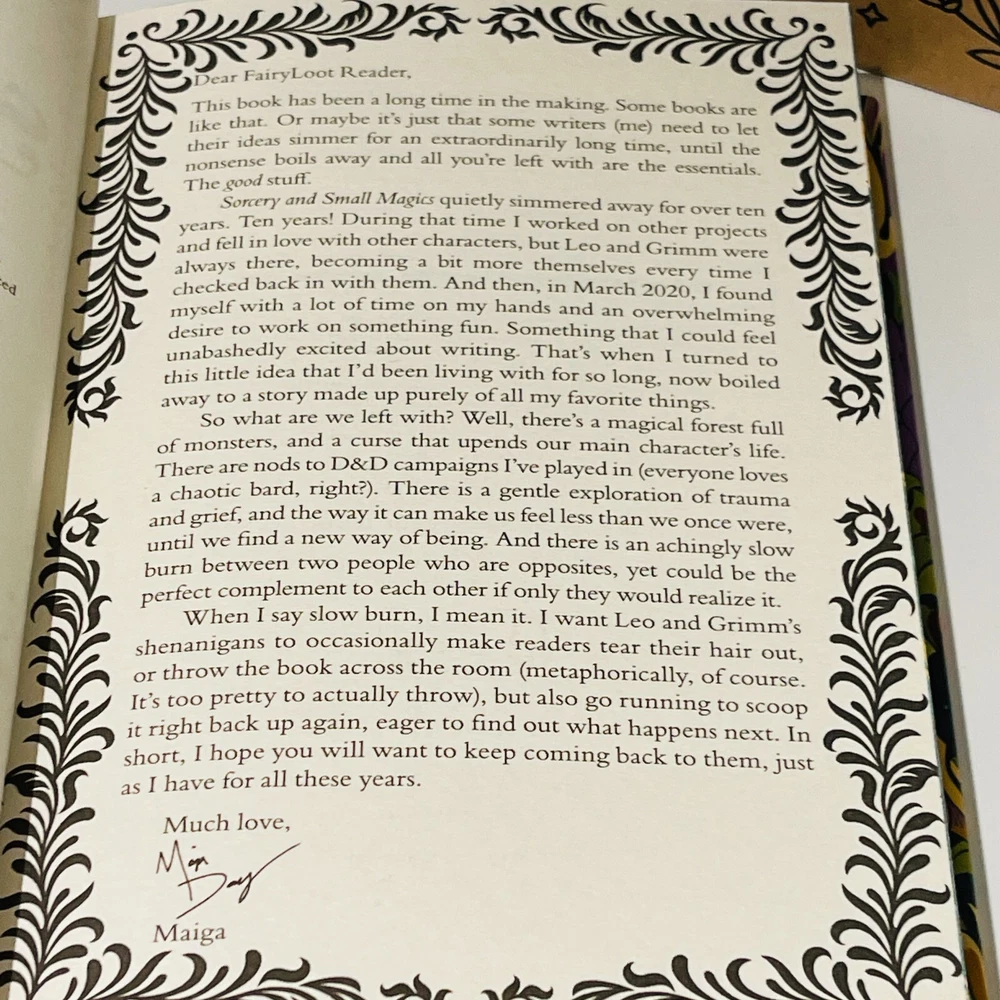 Dear FairyLoot Reader,
This book has been a long time in the making. Some books are
like that. Or maybe it's just that some writers (me) need to let
their ideas simmer for an extraordinarily long time, until the
nonsense boils away and all you're left with are the essentials.
The good stuff.
Sorcery and Small Magics quietly simmered away for over ten
years. Ten years! During that time I worked on other projects
and fell in love with other characters, but Leo and Grimm were
always there, becoming a bit more themselves every time I
checked back in with them. And then, in March 2020, I found
myself with a lot of time on my hands and an overwhelming
desire to work on something fun. Something that I could feel
unabashedly excited about writing. That's when I turned to
this little idea that I'd been living with for so long, now boiled
away to a story made up purely of all my favorite things.
So what are we left with? Well, there's a magical forest full
of monsters, and a curse that upends our main character's life.
There are nods to D&D campaigns I've played in (everyone loves
a chaotic bard, right?). There is a gentle exploration of trauma
and grief, and the way it can make us feel less than we once were,
until we find a new way of being. And there is an achingly slow
burn between two people who are opposites, yet could be the
perfect complement to each other if only they would realize it.
When I say slow burn, I mean it. I want Leo and Grimm's
shenanigans to occasionally make readers tear their hair out,
or throw the book across the room (metaphorically, of course.
It's too pretty to actually throw), but also go running to scoop
it right back up again, eager to find out what happens next. In
short, I hope you will want to keep coming back to them, just
as I have for all these years.
Much love,
Maiga